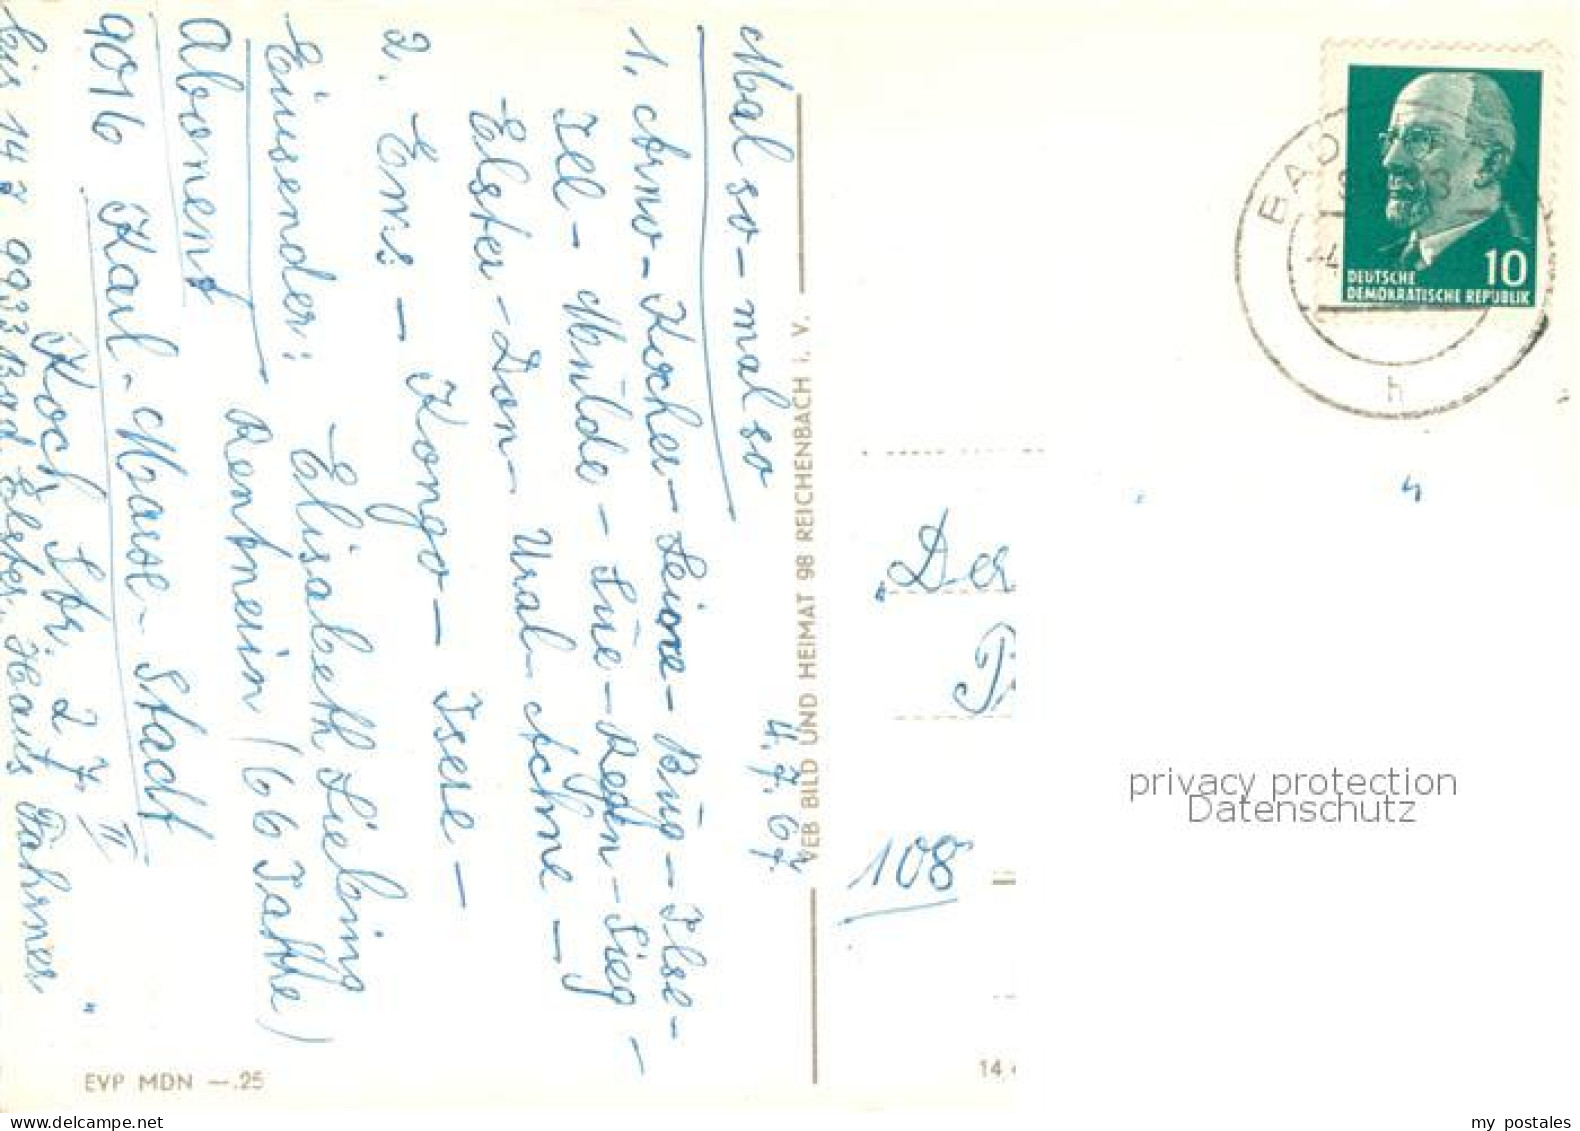 Mal so – mal so
4.7.67.
1. Arno – Kocher – Leine – Bug – Ilse –
Ill – Mulde – Lüe – Regen – Sieg –
Elster – Don – Ural – Ache –
2. Ems – Kongo – Isere –
Einsender: Elisabeth Liebing
Rentnerin (66 Jahre)
Abonnent
9016 Karl-Marx-Stadt
Koch Str. 27 II
bis 14.7 9933 Bad Elster, Haus Fahrner
EVP MDN —.25
VEB BILD UND HEIMAT 98 REICHENBACH I. V.
BAD
h
DEUTSCHE
DEMOKRATISCHE REPUBLIK
10
„Der
108
14
privacy protection
Datenschutz
my postales